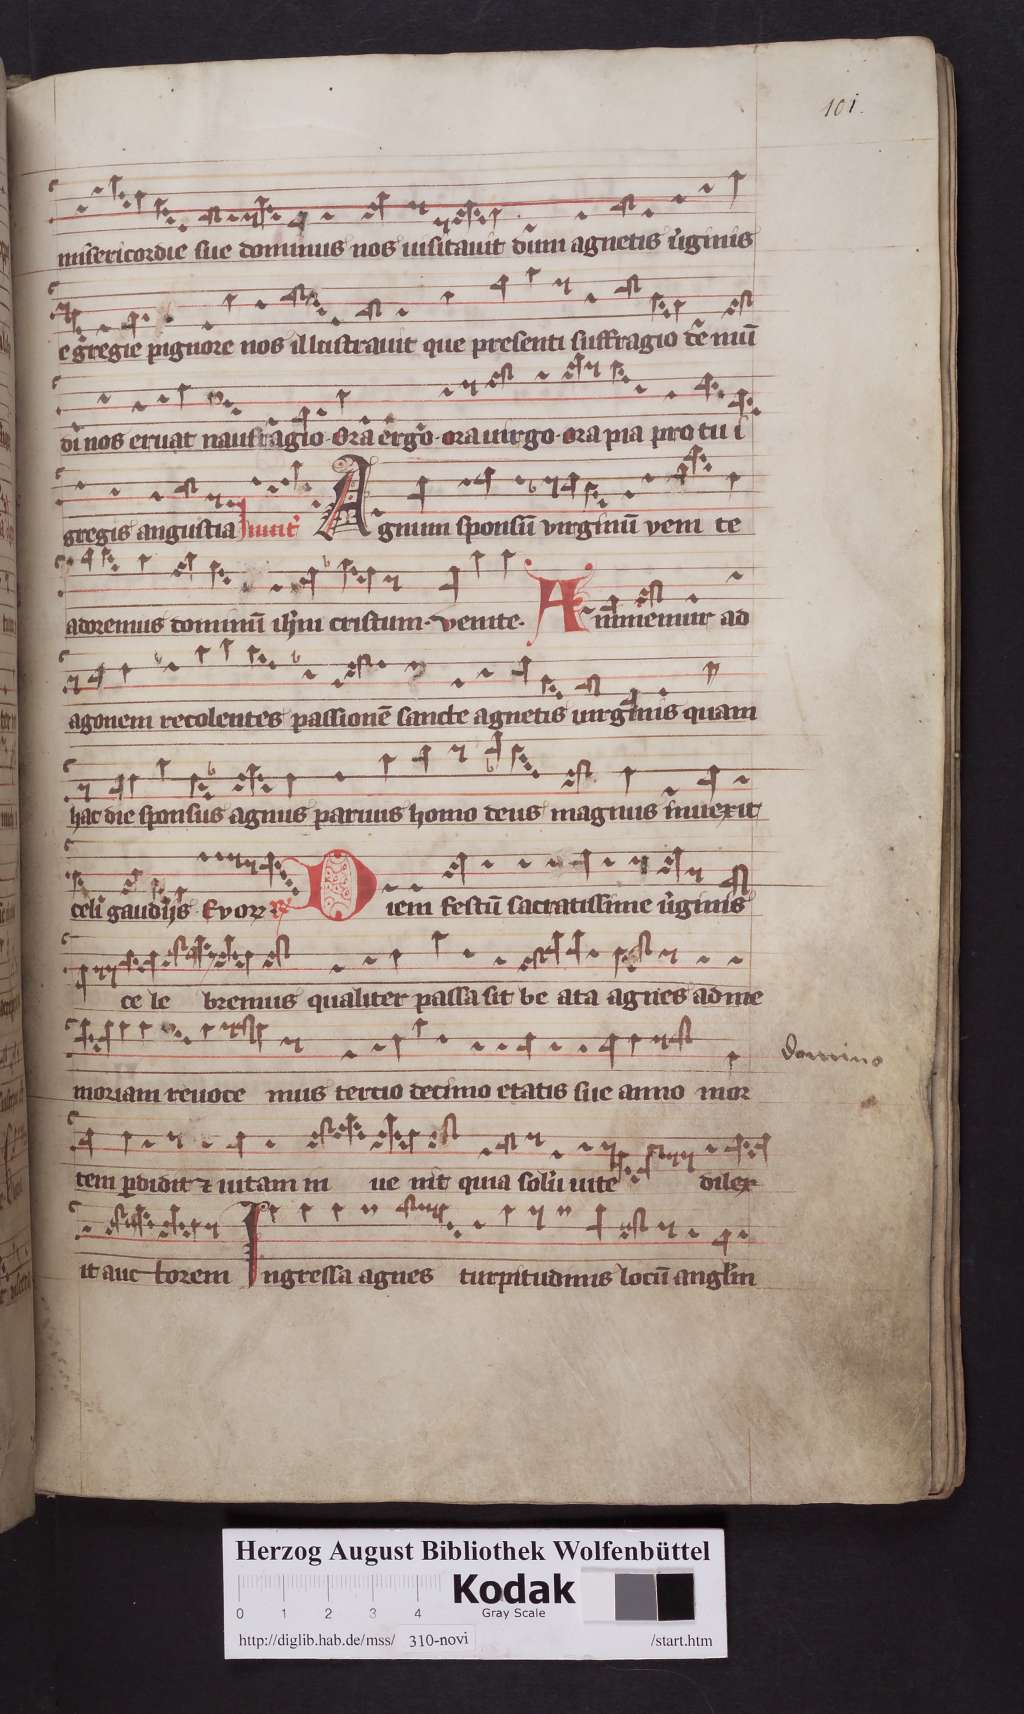 101.
misericordie sue dominus nos uisitauit dum agnetis uirginis
egregie pignore nos illustrauit que presenti suffragio te mun
di nos eruat naufragio · Ora ergo · ora uirgo · ora pia pro tu i
gregis angustia Inuit Agnum sponsū virginū veni te
adoremus dominū ihm cristum · venite · Annuemur ad
agonem recolentes passionē sancte agnetis uirginis quam
hac die sponsus agnus paruus homo deus magnus inuexit
celi gaudijs Evovae R Diem festū sacratissime uginis
ce le bremus qualiter passa sit be ata agnes ad me
moriam reuoce mus tercio decimo etatis sue anno mor
domino
tem pdidit ⁊ uitam in ue nit quia solū uite dilex
it auc torem Ingressa agnes turpitudinis locū anglm
Herzog August Bibliothek Wolfenbüttel
0 1 2 3 4
Kodak
Gray Scale
http://diglib.hab.de/mss/ 310-novi /start.htm